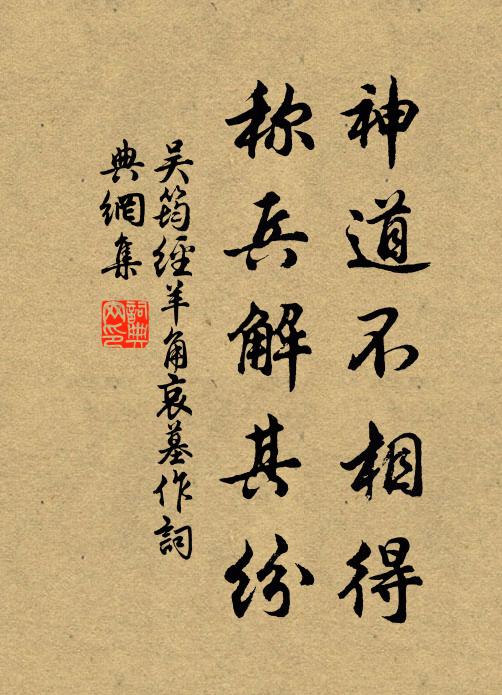 神道不相得
称兵解其纷
吴筠經羊角哀墓作詞
典網集
詞典
网印